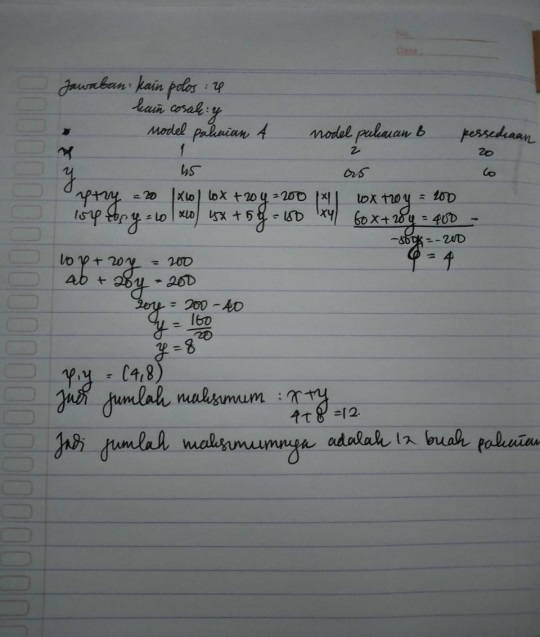 No.
Date.
Jawaban: kain polos : x
kain corak : y
model pakaian A model pakaian B persediaan
x 1 2 20
y 1.5 0.5 10
x+2y = 20 |x10| 10x + 20y = 200 |x1| 10x + 20y = 200
1.5x + 0.5y = 10 |x10| 15x + 5y = 100 |x4| 60x + 20y = 400 -
-50x = -200
x = 4
10x + 20y = 200
40 + 20y = 200
20y = 200 - 40
y = 160/20
y = 8
x,y = (4,8)
Jadi jumlah maksimum : x+y
4+8 = 12
Jadi jumlah maksimumnya adalah 12 buah pakaian